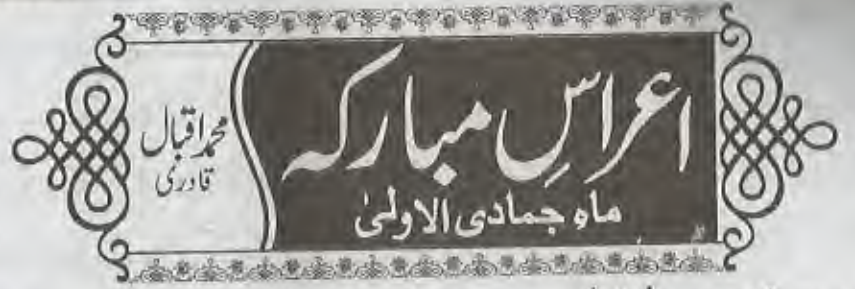 اعراسِ مبارکہ
ماہِ جمادی الاولیٰ
محمد اقبال
قادری